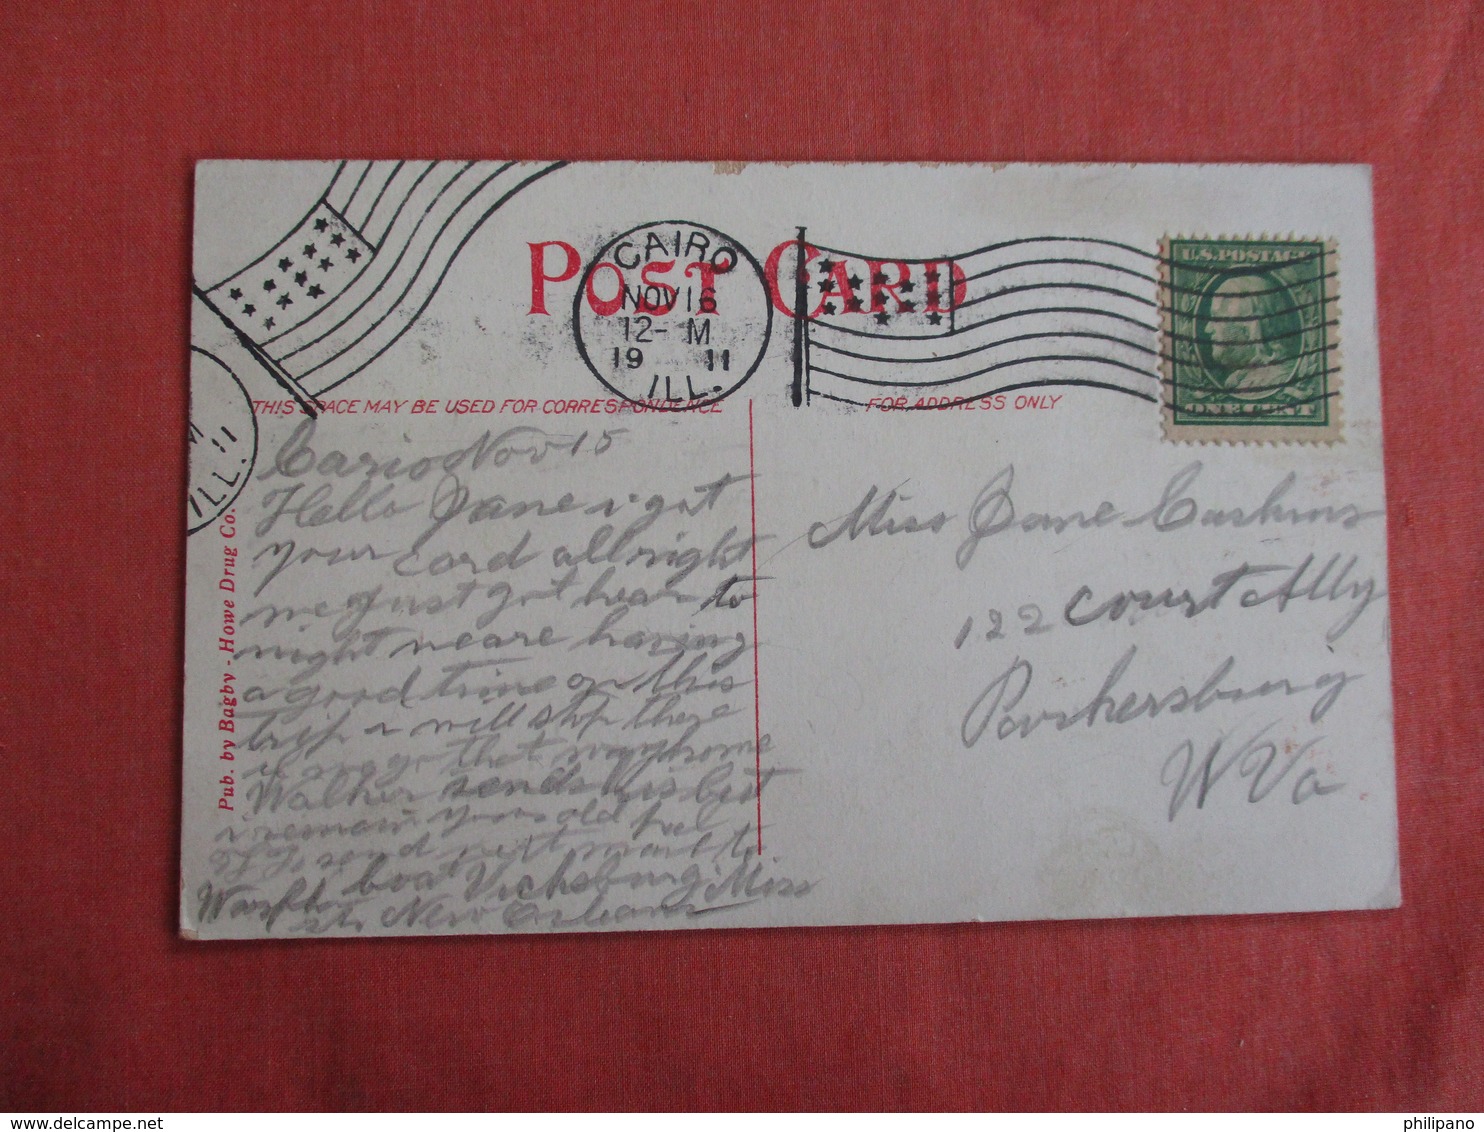 POST CARD
CAIRO
NOV 16
12- M
19 11
ILL.
M
11
ILL.
U.S. POSTAGE
ONE CENT
THIS SPACE MAY BE USED FOR CORRESPONDENCE
FOR ADDRESS ONLY
Pub. by Bagby - Howe Drug Co.
Cario Nov 15
Hello Jane i got
your card all right
we Just got hear to
night we are having
a good time on this
trip i will stop there
that way home
Walker sends his best
yours old pal
send next mail to
boat Vicksburg Miss
New Orleans
Miss Jane
122 Court Ally
Parkersburg
W Va
philipano